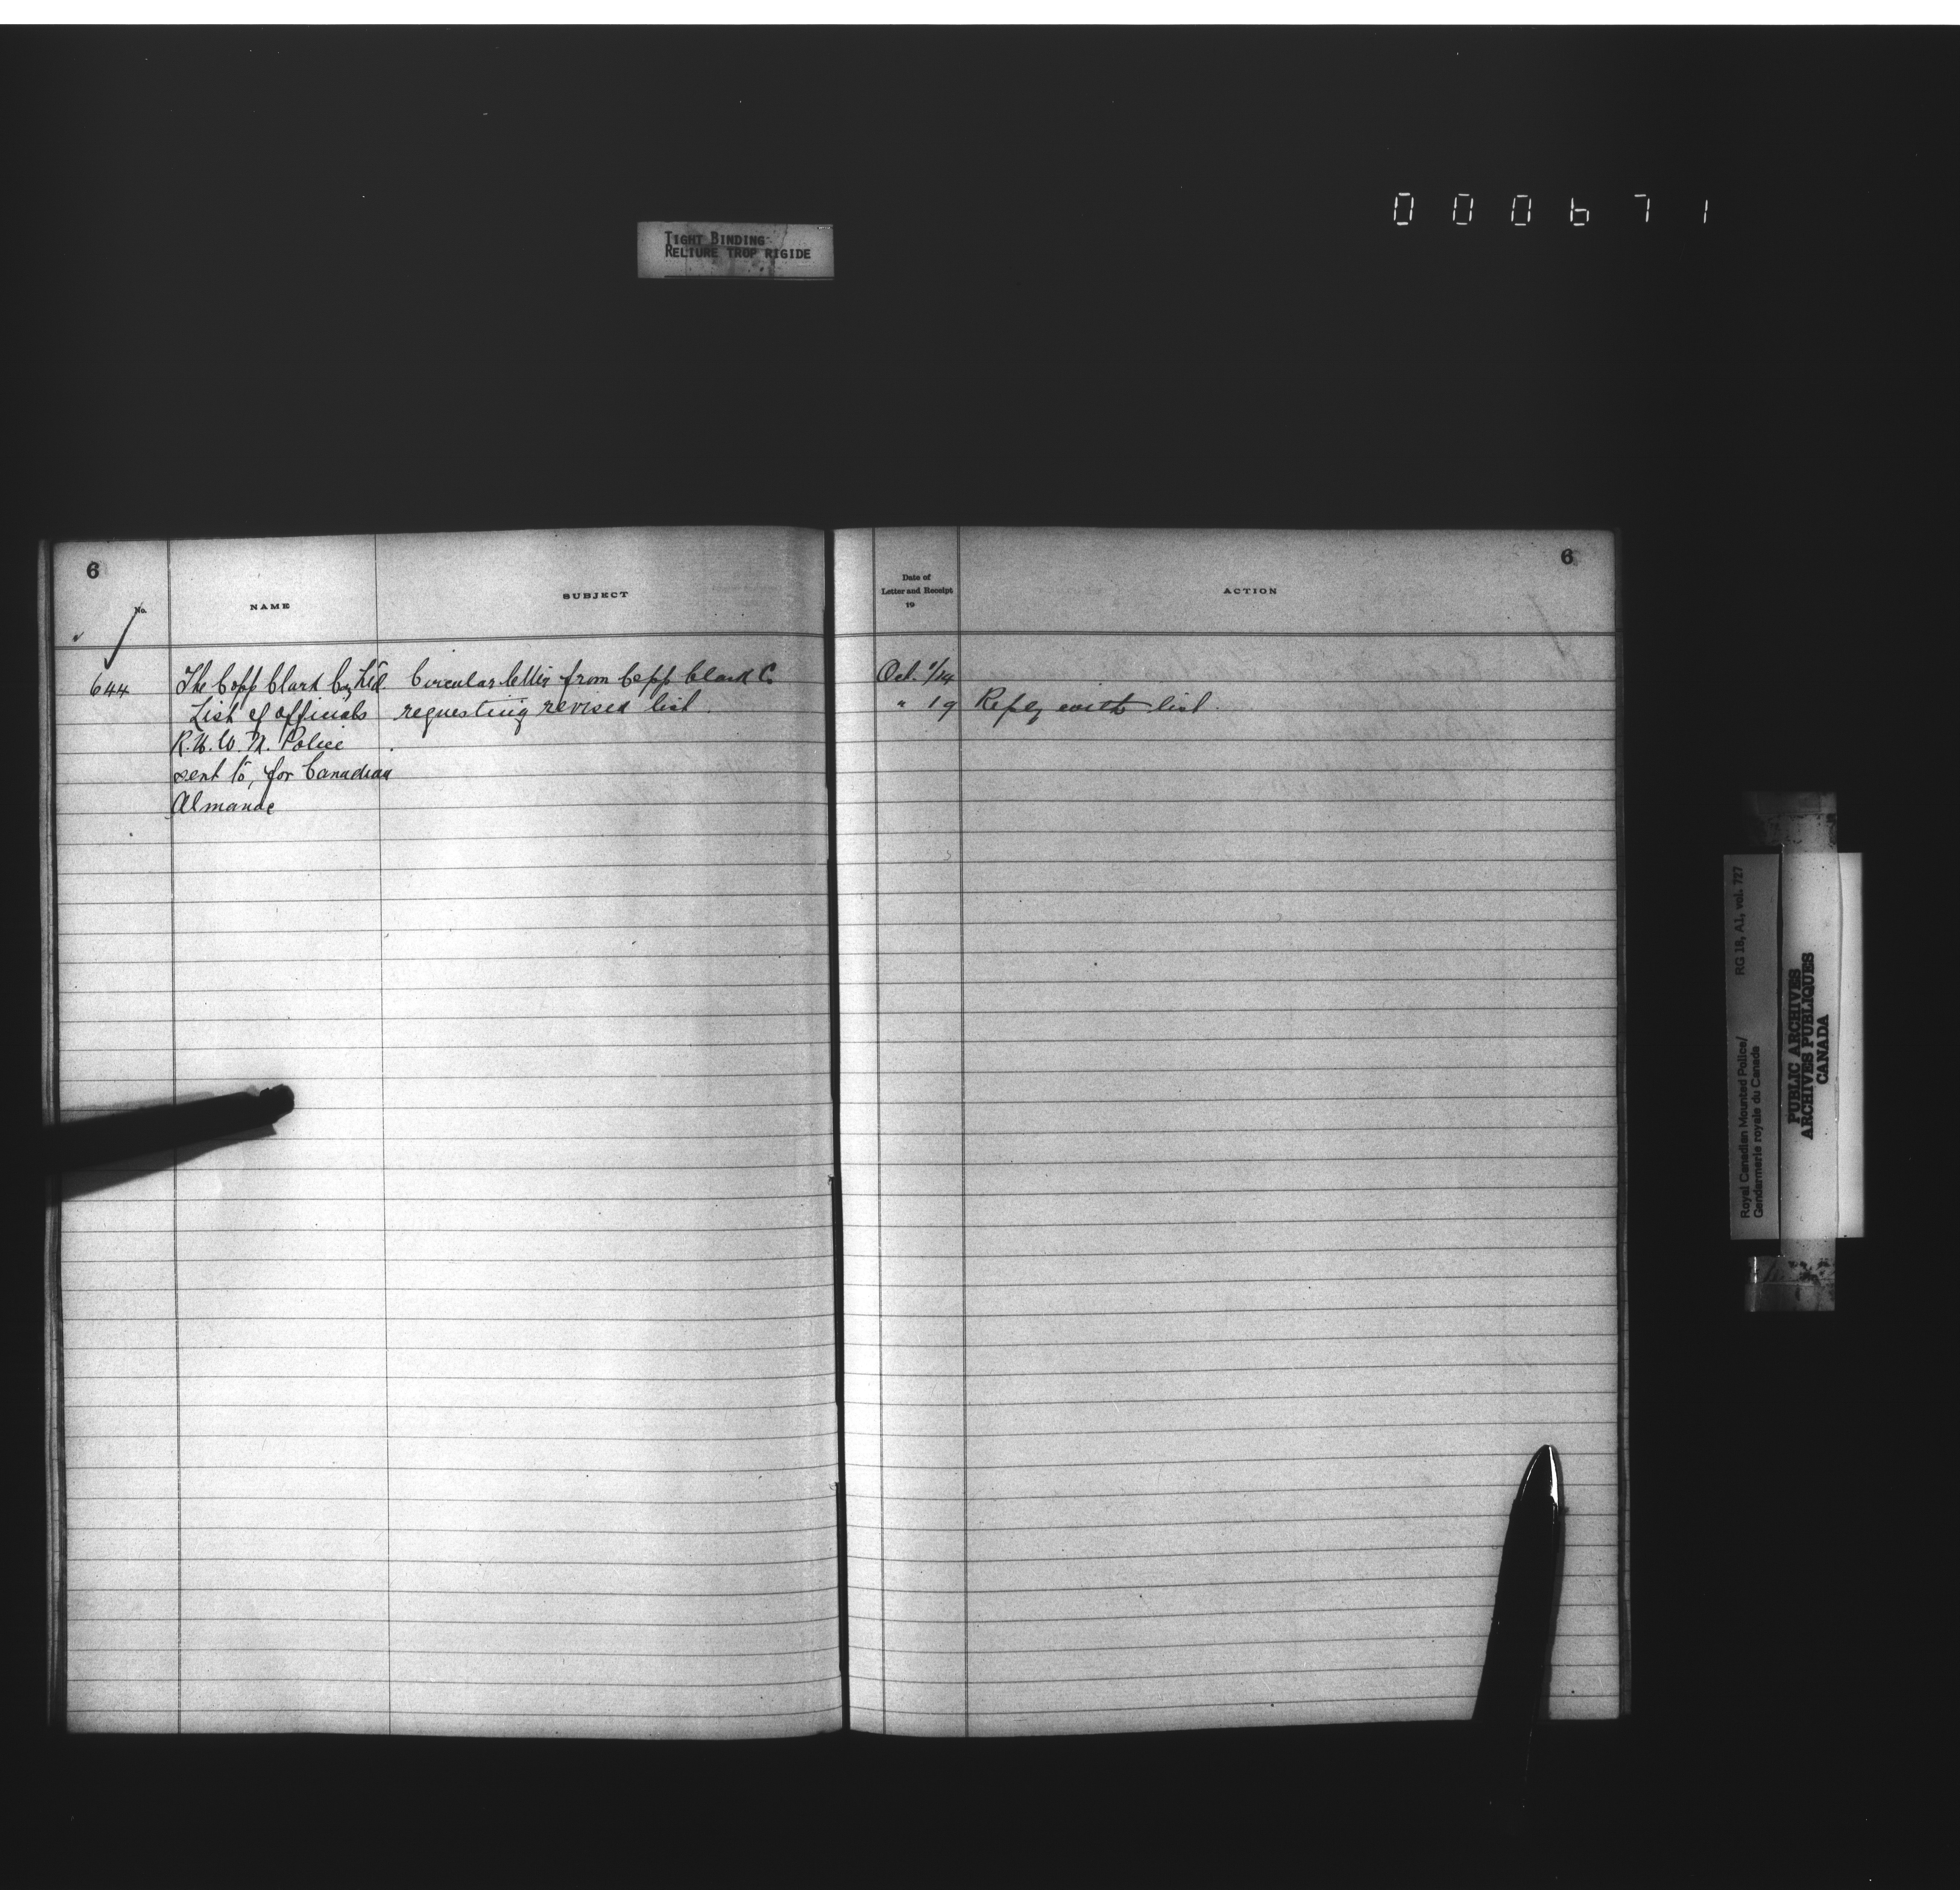 000671
TIGHT BINDING
RELIURE TROP RIGIDE
6
No.
NAME
SUBJECT
644
The Copp Clark Coy Ltd.
List of officials
R.N.W.M. Police
sent to, for Canadian
Almanac
Circular letter from Copp Clark Co
requesting revised list.
6
Date of
Letter and Receipt
19
ACTION
Oct.
" 19 Reply with list.
Royal Canadian Mounted Police/ RG 18, A1, vol. 727
Gendarmerie royale du Canada
PUBLIC ARCHIVES
ARCHIVES PUBLIQUES
CANADA